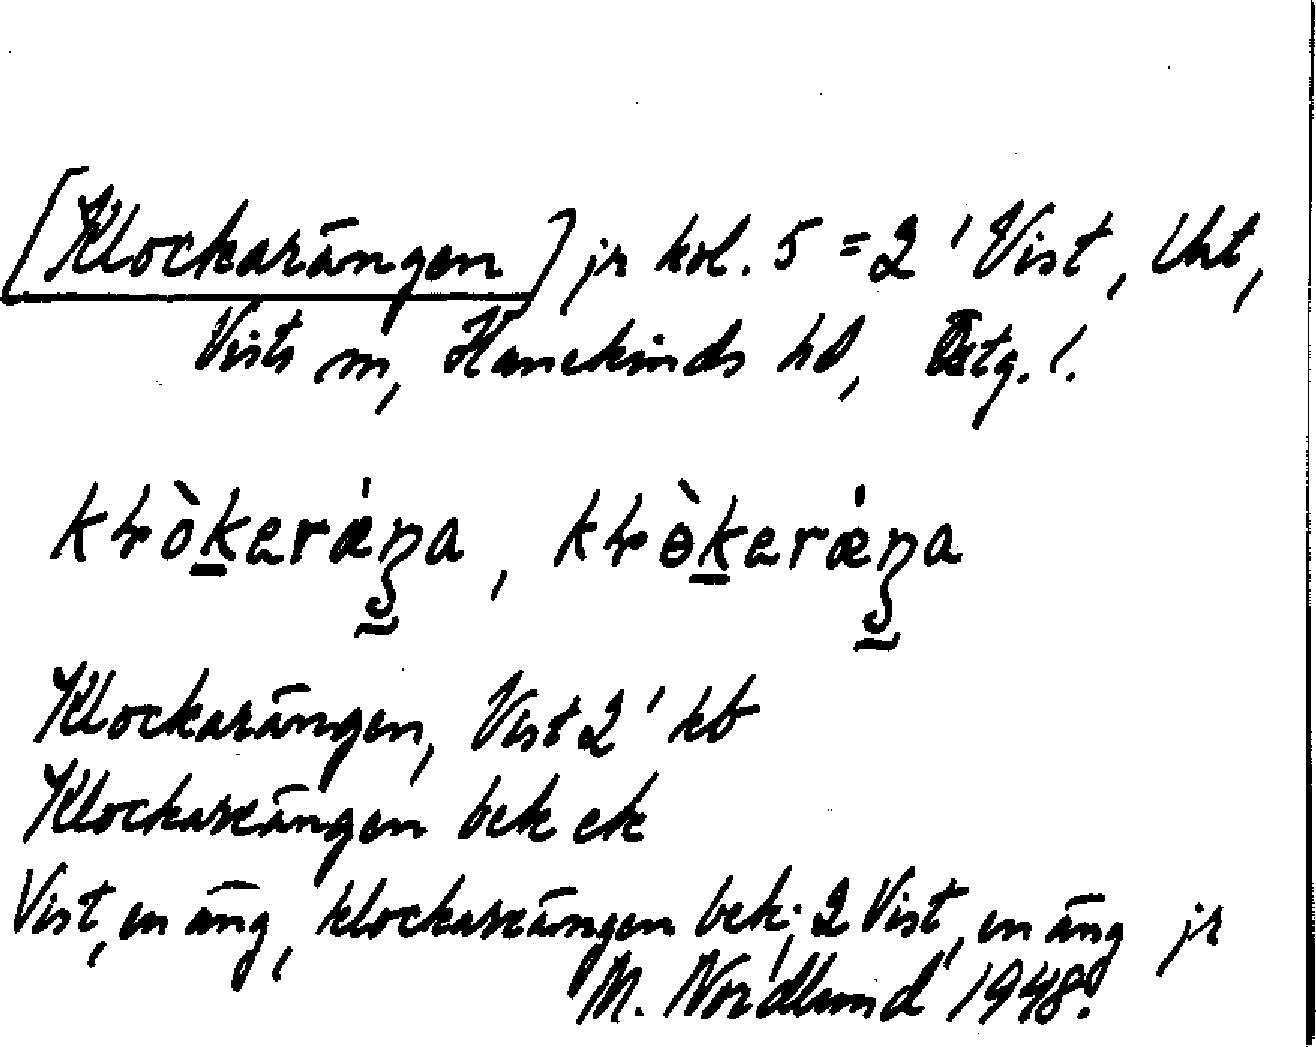 [Klockarängen] jr kol. 5 = 2' Vist, Uht,
Vists sn, Hanekinds hd, Östg. l.
kłòkeráŋa, kłòkeráŋa
Klockarängen, Vist 2' kb
Klockareängen bek ek
Vist, en äng, klockareängen bek; 2 Vist, en äng jr
M. Nordlund 1948.